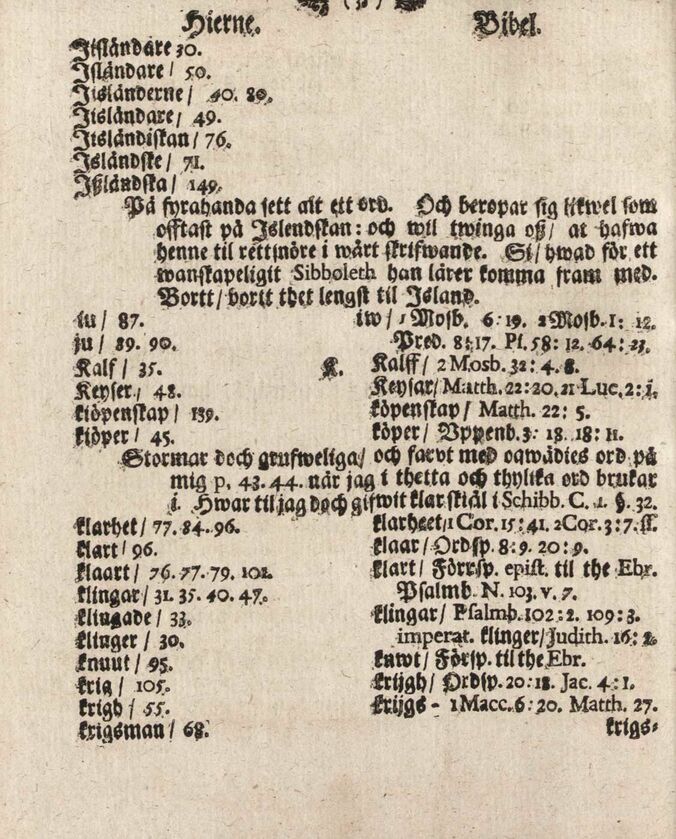 Hierne. Bibel.
Jisländare 30.
Jsländare / 50.
Jisländerne / 40. 80.
Jtsländare / 49.
Jtsländiskan / 76.
Jsländske / 71.
Jßländska / 149.
På fyrahanda sett alt ett ord. Och beropar sig likwel som
offtast på Jslendskan: och wil twinga oß / at hafwa
henne til rettsnöre i wårt skrifwande. Si / hwad för ett
wanskapeligit Sibboleth han lärer komma fram med.
Bortt / borit thet lengst til Jsland.
iu / 87. iw / 1 Mosb. 6:19. 2 Mosb. 1: 12.
ju / 89. 90. Pred. 8:17. Pf. 58: 12. 64: 23.
Kalf / 35. K. Kalff / 2 Mosb. 32: 4. 8.
Keyser / 48. Keysar / Matth. 22:20.21 Luc. 2: 1.
kiöpenskap / 139. köpenskap / Matth. 22: 5.
kiöper / 45. köper / Uppenb. 3: 18. 18: 11.
Stormar doch grufweliga / och farvt med oqwädies ord på
mig p. 43. 44. när jag i thetta och thylika ord brukar
i. Hwar til jag doch gifwit klar skiäl i Schibb. C. 1. §. 32.
klarhet / 77. 84. 96. klarheet / 1 Cor. 15: 41. 2 Cor. 3: 7. ff.
klart / 96. klaar / Ordsp. 8: 9. 20: 9.
klaart / 76. 77. 79. 101. klart / Förrsp. epist. til the Ebr.
Psalmb. N. 103. v. 7.
klingar / 31. 35. 40. 47. klingar / Psalmb. 102: 2. 109: 3.
klingade / 33. imperat. klinger / Judith. 16: 2.
klinger / 30.
knuut / 95. knwt / Försp. til the Ebr.
krig / 105. krijgh / Ordsp. 20: 18. Jac. 4: 1.
krigh / 55. krijgs - 1 Macc. 6: 20. Matth. 27.
krigsman / 68. krigs-